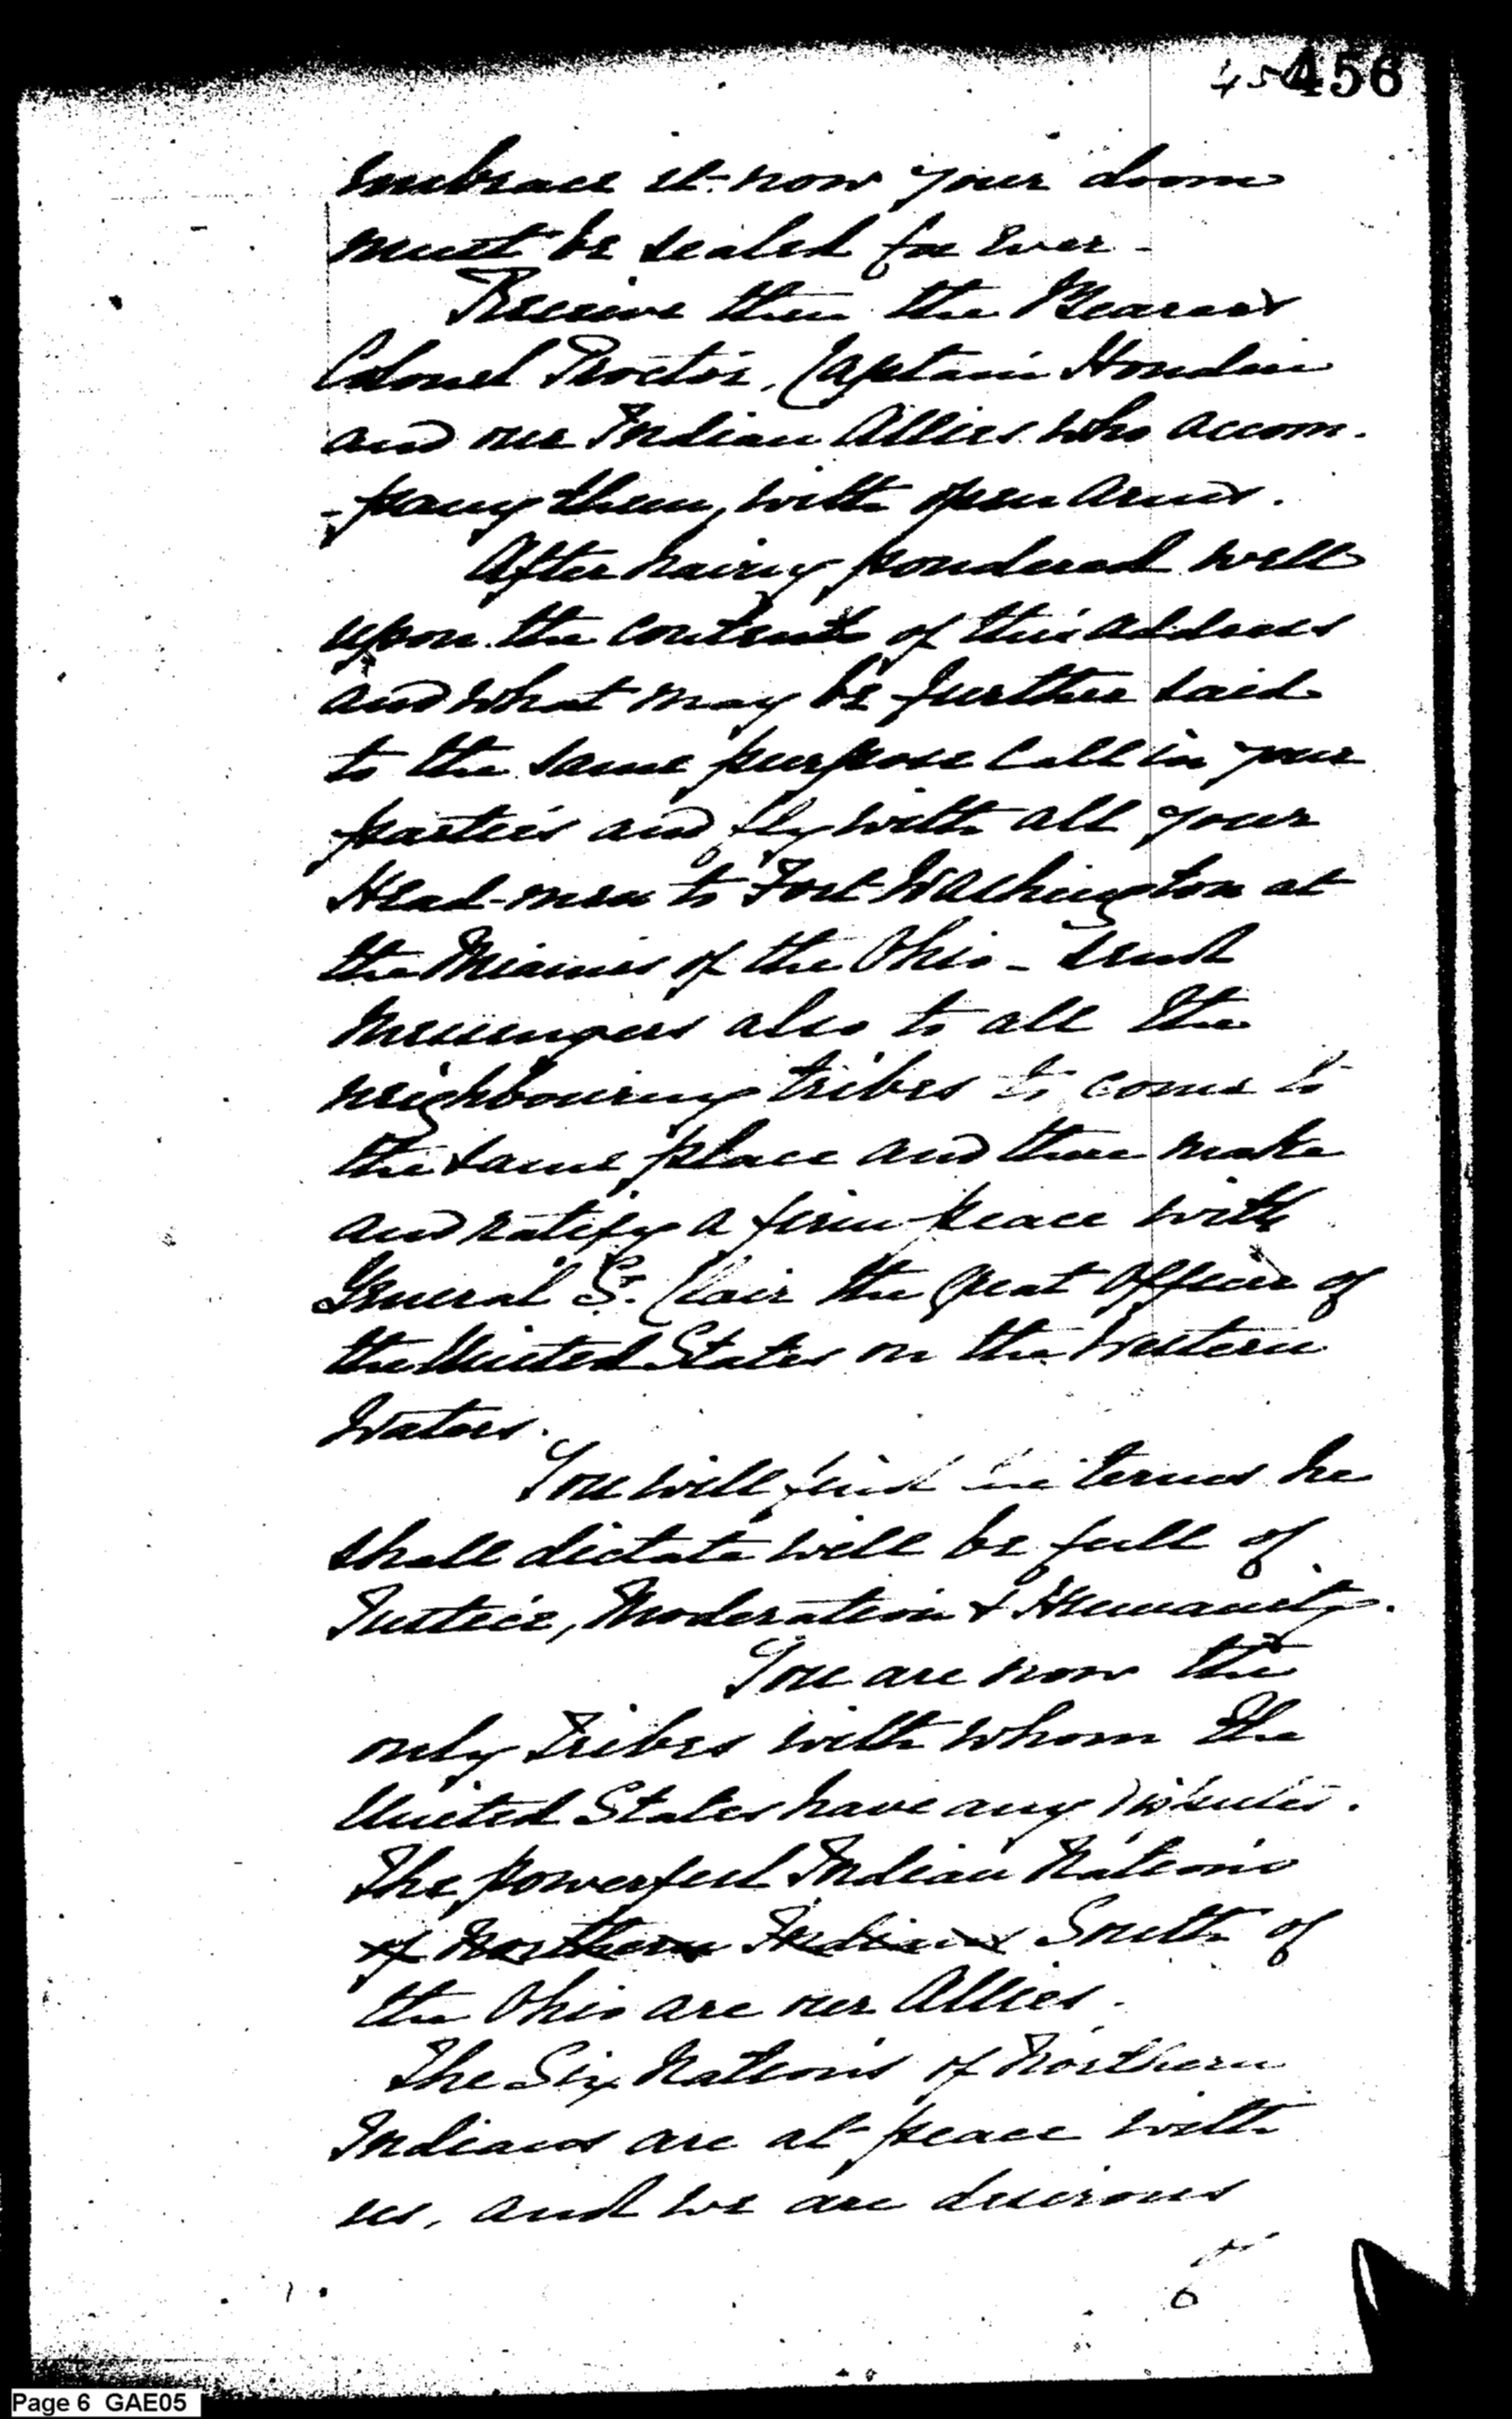 456
embrace it now your doom
must be sealed for ever -
Receive then the Bearers
Colonel Proctor, Captain Houdin
and our Indian Allies who accom-
-pany them, with open arms.
After having pondered well
upon the contents of this address
and what may be further said
to the same purpose call in your
parties and fly with all your
Head-men to Fort Washington at
the Miamis of the Ohio - send
Messengers also to all the
neighbouring tribes to come to
the same place and there make
and ratify a firm peace with
General St. Clair the great Officer of
the United States on the Western
Waters.
You will find the terms he
shall dictate will be full of
Justice, Moderation & Humanity.
You are now the
only tribes with whom the
United States have any disputes.
The powerful Indian Nations
of Northern Indians South of
the Ohio are our Allies.
The Six Nations of Northern
Indians are at peace with
us, and we are desirous
of
Page 6 GAE05